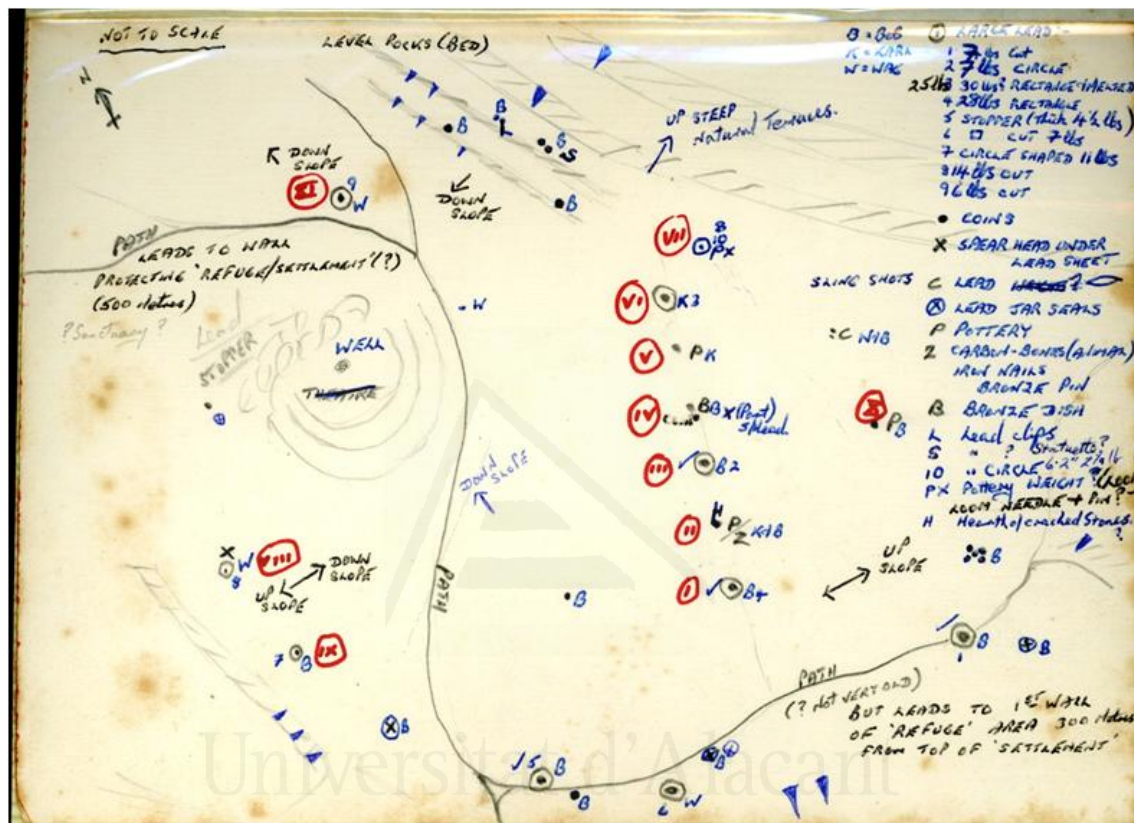 NOT TO SCALE
N
LEVEL ROCKS (BED)
B = BOB
K = KARL
W = WAG
1 LARGE LEAD:-
1 7 lbs Cut
2 7 lbs CIRCLE
25 lbs 3 30 lbs? RECTANGLE
4 28 lbs RECTANGLE
5 STOPPER (thick 4½ lbs)
6 □ CUT 7 lbs
7 CIRCLE SHAPED 11 lbs
8 14 lbs CUT
9 6 lbs CUT
• COINS
X SPEAR HEAD UNDER
LEAD SHEET
SLING SHOTS C LEAD
⊗ LEAD JAR SEALS
P POTTERY
Z CARBON-BONES (ANIMAL)
IRON NAILS
BRONZE PIN
B BRONZE DISH
L Lead clips
S " ? Statuette?
10 " CIRCLE
PX Pottery WEIGHT?
LOOM NEEDLE + PIN?
H Hearth of cracked Stones?
B
L
B
B
S
B
UP STEEP
Natural Terraces.
DOWN
SLOPE
DOWN
SLOPE
XI
9
W
PATH
LEADS TO WALL
PROTECTING 'REFUGE/SETTLEMENT' (?)
(500 Metres)
? Sanctuary ?
Lead
STOPPER
WELL
THEATRE
W
VII
8
10
PX
VI
K3
V
P K
IV
COIN
B B X (Part)
S/Head
III
B2
II
H
P/Z K+B
I
B4
C W+B
X
P B
DOWN
SLOPE
UP
SLOPE
B
X
8
W
VIII
DOWN
SLOPE
UP
SLOPE
PATH
B
7
B
IX
B
1
B
B
PATH
(? NOT VERY OLD)
BUT LEADS TO 1ST WALL
OF 'REFUGE' AREA 300 Metres
FROM TOP OF 'SETTLEMENT'
5
B
B
B
6
W
Universitat d'Alacant